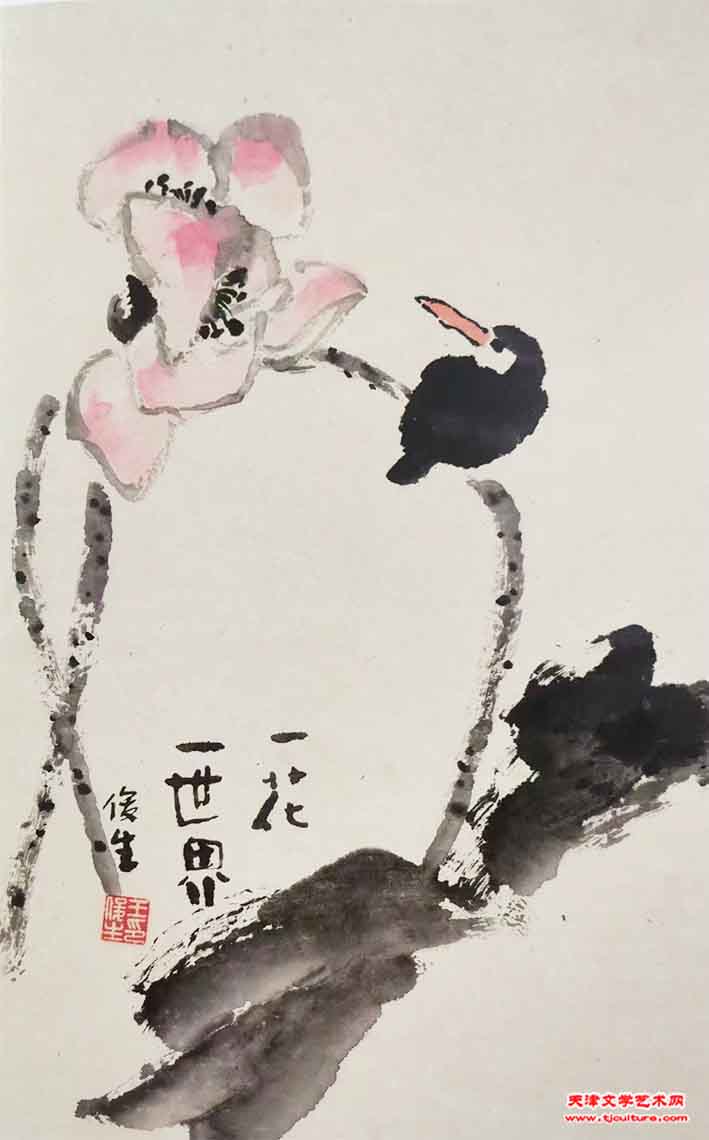 一花
一世界
俊生
王印
俊生
天津文学艺术网
www.tjculture.com